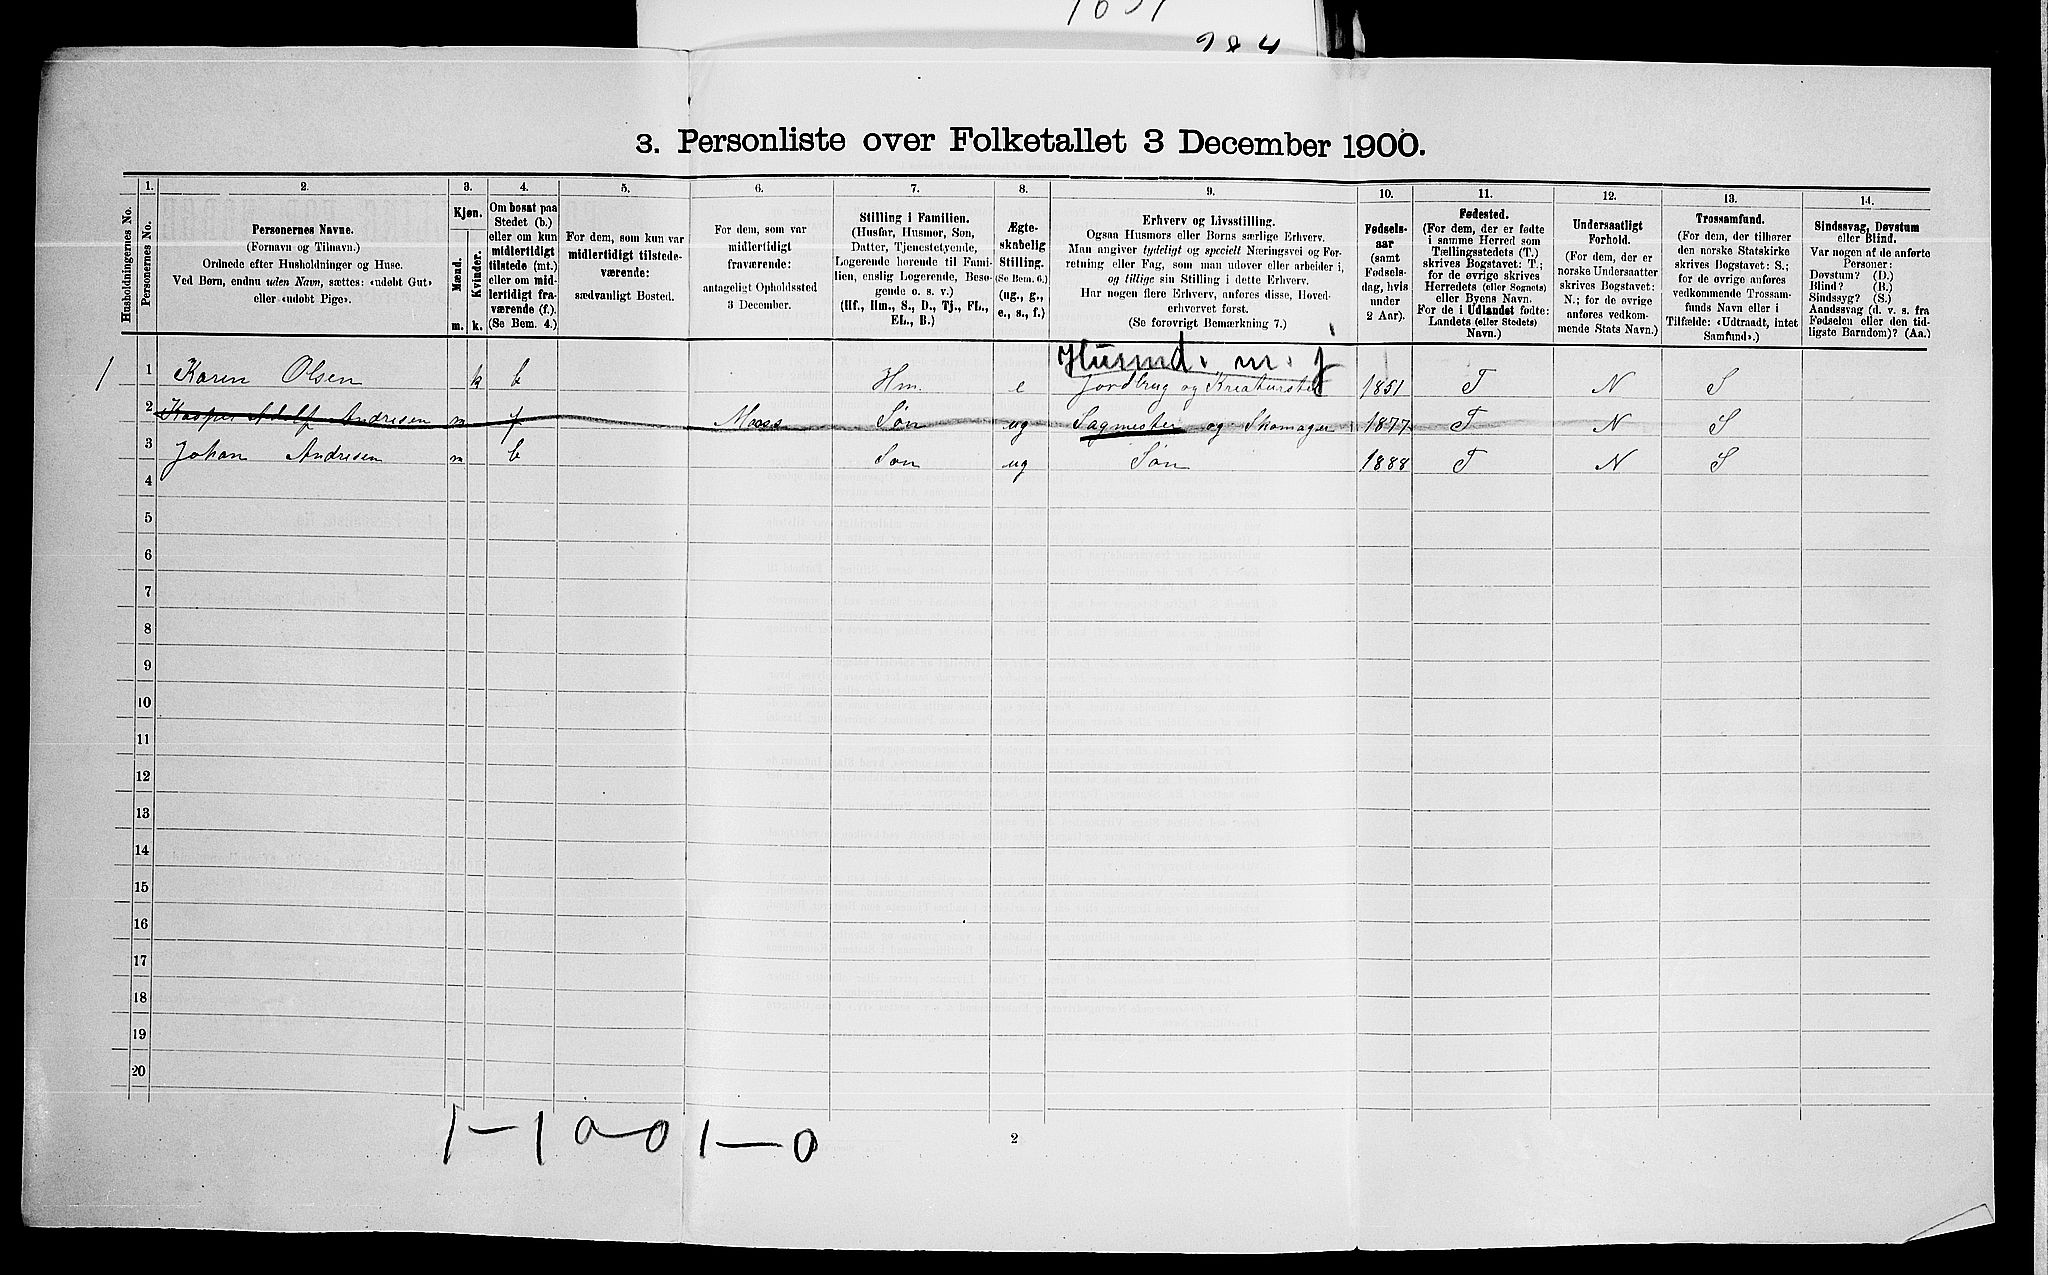 1651
984
3. Personliste over Folketallet 3 December 1900.
Husholdningernes No.
1.
Personernes No.
2.
Personernes Navne.
(Fornavn og Tilnavn.)
Ordnede efter Husholdninger og Huse.
Ved Børn, endnu uden Navn, sættes: «udøbt Gut»
eller «udøbt Pige».
3.
Kjøn.
Mænd.
Kvinder.
m. k.
4.
Om bosat paa
Stedet (b.)
eller om kun
midlertidigt
tilstede (mt.)
eller om mid-
lertidigt fra-
værende (f.).
(Se Bem. 4.)
5.
For dem, som kun var
midlertidigt tilstede-
værende:
sædvanligt Bosted.
6.
For dem, som var
midlertidigt
fraværende:
antageligt Opholdssted
3 December.
7.
Stilling i Familien.
(Husfar, Husmor, Søn,
Datter, Tjenestetyende,
Logerende hørende til Fami-
lien, enslig Logerende, Besø-
gende o. s. v.)
(Hf., Hm., S., D., Tj., FL.,
EL., B.)
8.
Ægte-
skabelig
Stilling.
(Se Bem. 6.)
(ug., g.,
e., s., f.)
9.
Erhverv og Livsstilling.
Ogsaa Husmors eller Børns særlige Erhverv.
Man angiver tydeligt og specielt Næringsvei og For-
retning eller Fag, som man udøver eller arbeider i,
og tillige sin Stilling i dette Erhverv.
Har nogen flere Erhverv, anføres disse, Hoved-
erhvervet først.
(Se forøvrigt Bemærkning 7.)
10.
Fødsels-
aar
(samt
Fødsels-
dag, hvis
under
2 Aar).
11.
Fødested.
(For dem, der er fødte
i samme Herred som
Tællingsstedets (T.)
skrives Bogstavet: T.;
for de øvrige skrives
Herredets (eller Sognets)
eller Byens Navn.
For de i Udlandet fødte:
Landets (eller Stedets)
Navn.)
12.
Undersaatligt
Forhold.
(For dem, der er
norske Undersaatter
skrives Bogstavet:
N.; for de øvrige
anføres vedkom-
mende Stats Navn.)
13.
Trossamfund.
(For dem, der tilhører
den norske Statskirke
skrives Bogstavet: S.;
for de øvrige anføres
vedkommende Trossam-
funds Navn eller i
Tilfælde: «Udtraadt, intet
Samfund».)
14.
Sindssvag, Døvstum
eller Blind.
Var nogen af de anførte
Personer:
Døvstum? (D.)
Blind? (B.)
Sindssyg? (S.)
Aandssvag (d. v. s. fra
Fødselen eller den tid-
ligste Barndom)? (Aa.)
Husmd. m. j
1 1 Karen Olsen k b Hm. e Jordbrug og Kreaturstel 1851 T N S
2 Kasper Adolf Andresen m f Moss Søn ug Sagmester og Skomager 1877 T N S
3 Johan Andresen m b Søn ug Søn 1888 T N S
4
5
6
7
8
9
10
11
12
13
14
15
16
17
18
19
20
1-1 0-0 1-0
2